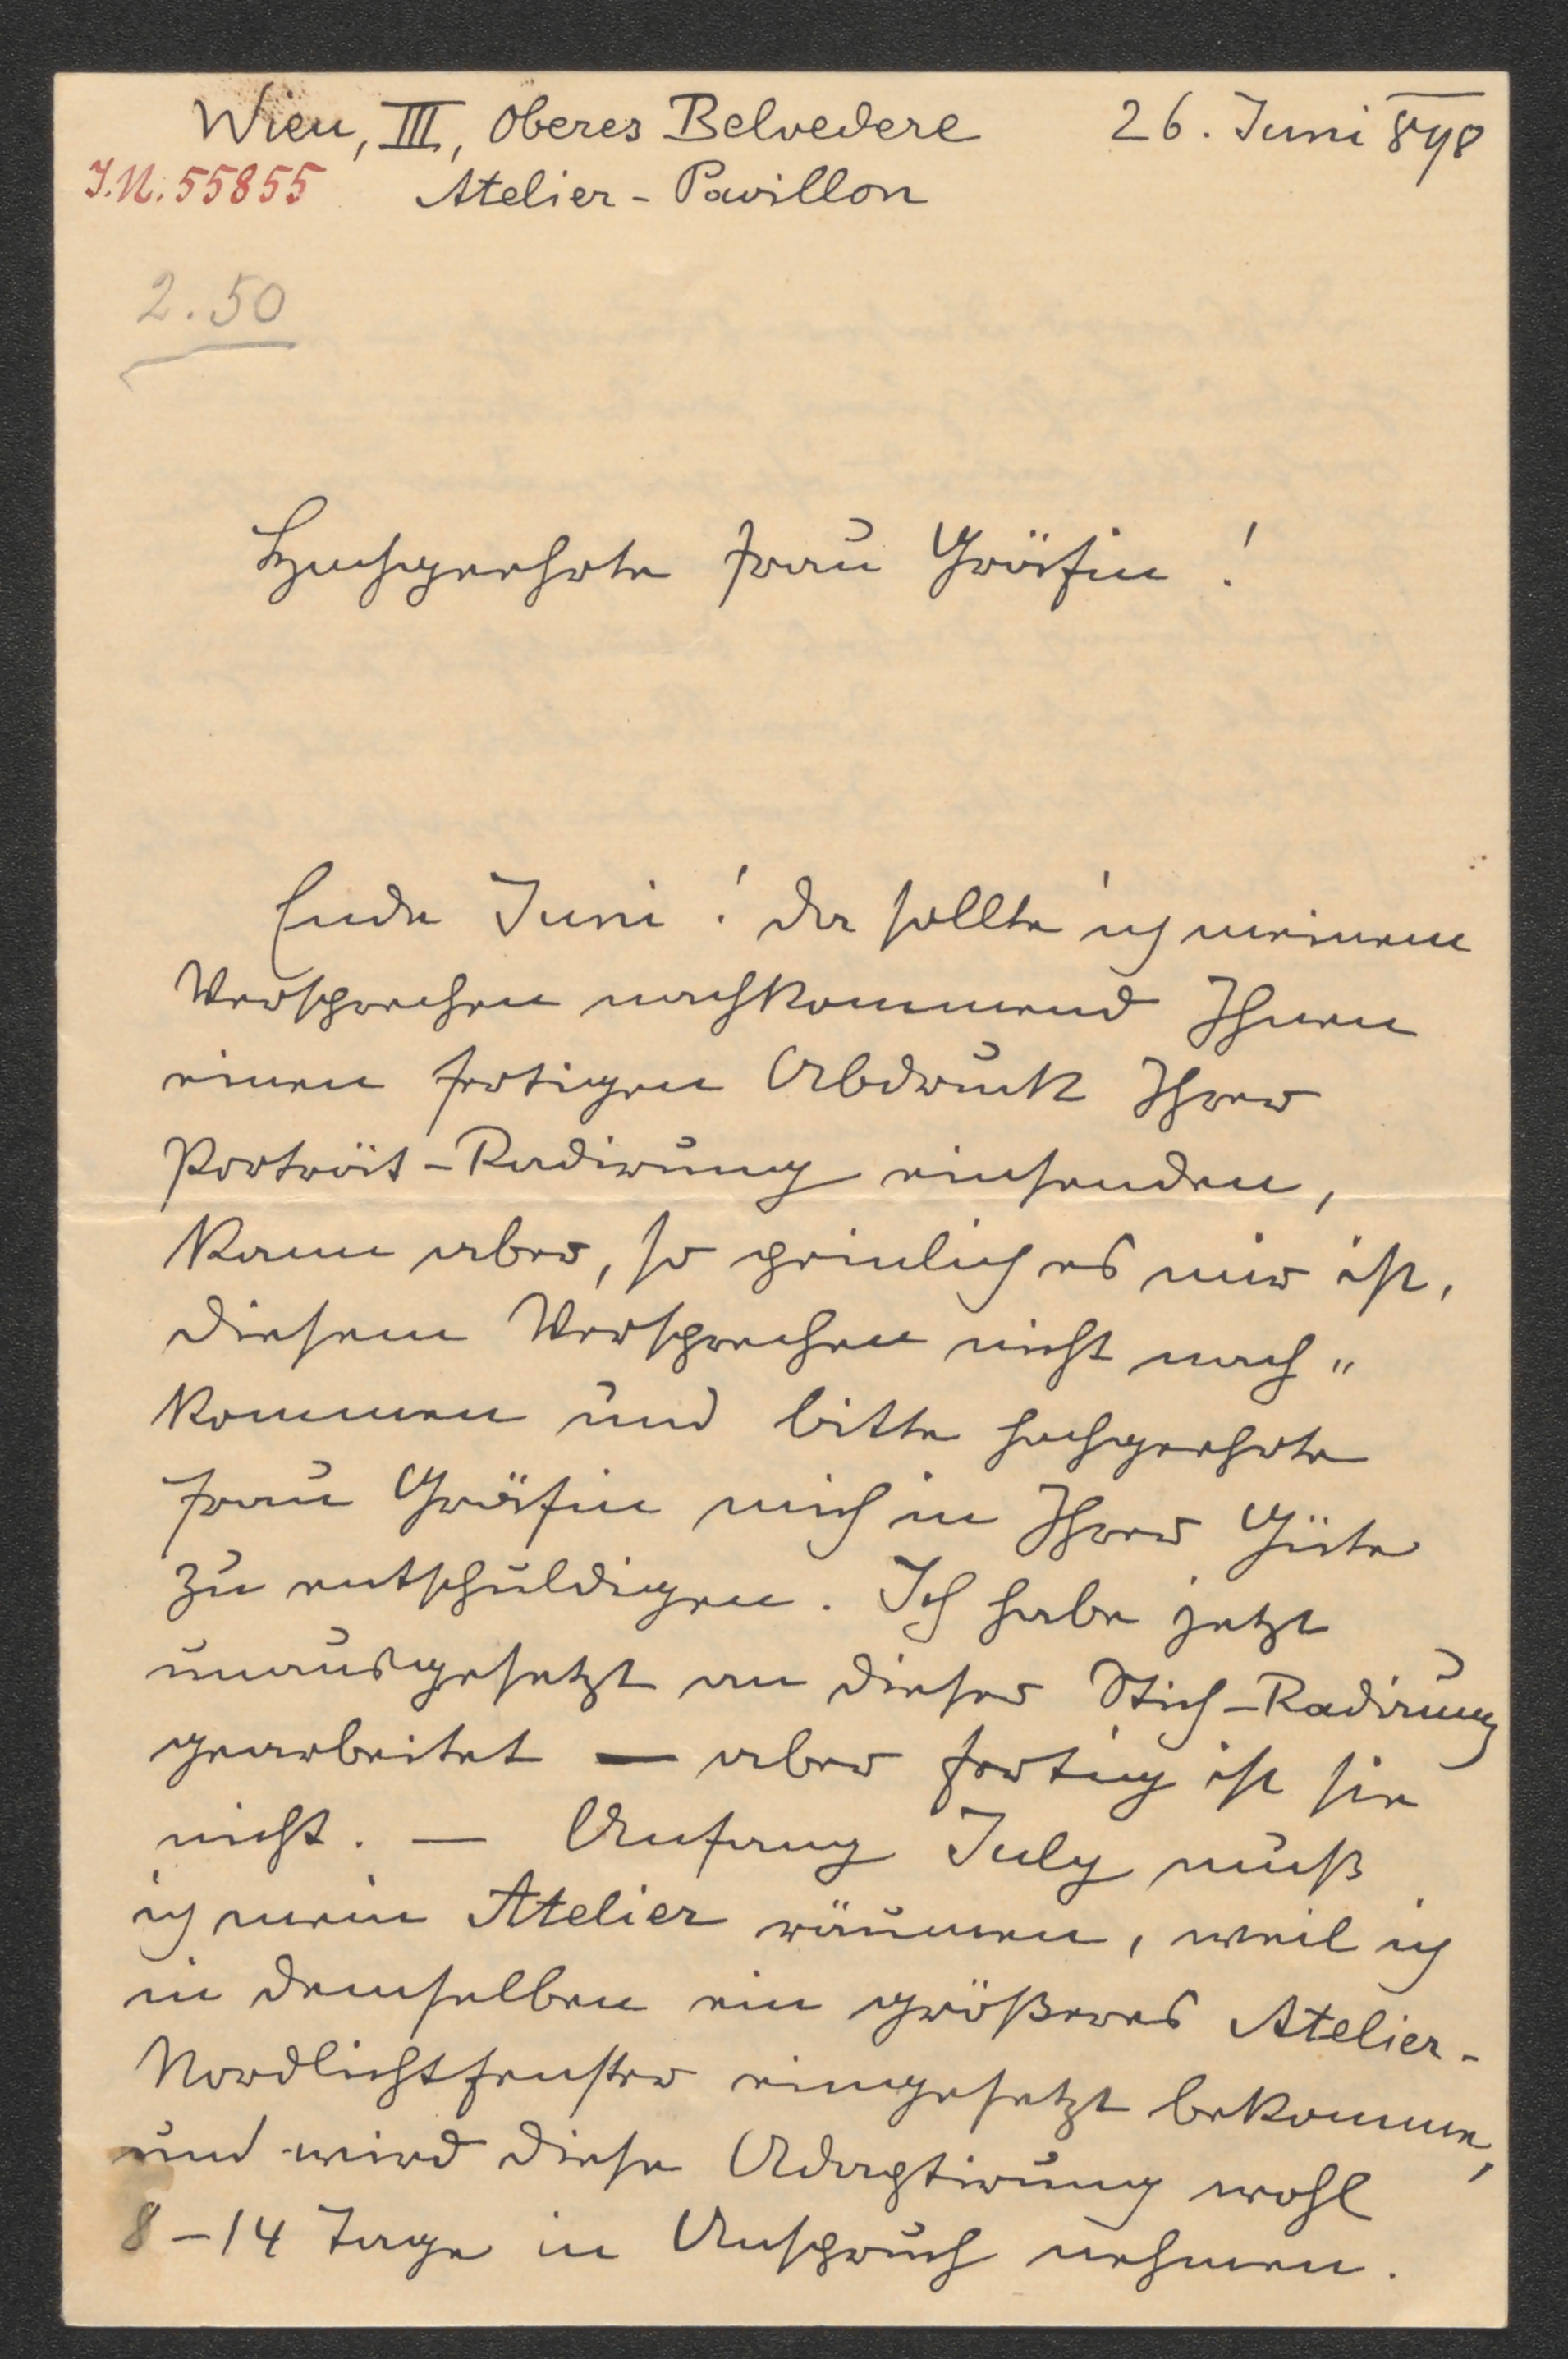 Wien, III, Oberes Belvedere 26. Juni 898
J.N. 55855 Atelier - Pavillon
2.50
Hochgeehrte Frau Gräfin !
Ende Juni ! da sollte ich meinem
Versprechen nachkommend Ihnen
einen fertigen Abdruck Ihrer
Porträt-Radirung einsenden,
kann aber, so peinlich es mir ist,
diesem Versprechen nicht nach"
kommen und bitte hochgeehrte
Frau Gräfin mich in Ihrer Güte
zu entschuldigen. Ich habe jetzt
unausgesetzt an dieser Stich-Radirung
gearbeitet — aber fertig ist sie
nicht. — Anfang July muß
ich mein Atelier räumen, weil ich
in demselben ein größeres Atelier-
Nordlichtfenster eingesetzt bekomme,
und wird diese Adaptirung wohl
8-14 Tage in Anspruch nehmen.